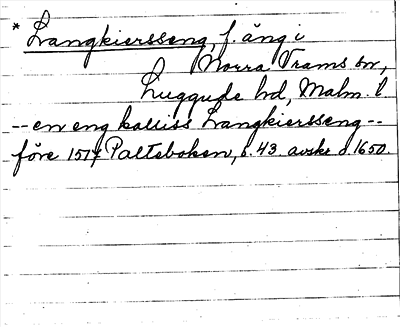 * Langkiersseng, f. äng i
Norra Vrams sn,
Luggude hd, Malm. l
--en eng kalliss Langkiersseng--
före 1574 Palteboken, s. 43. avskr. o. 1650.